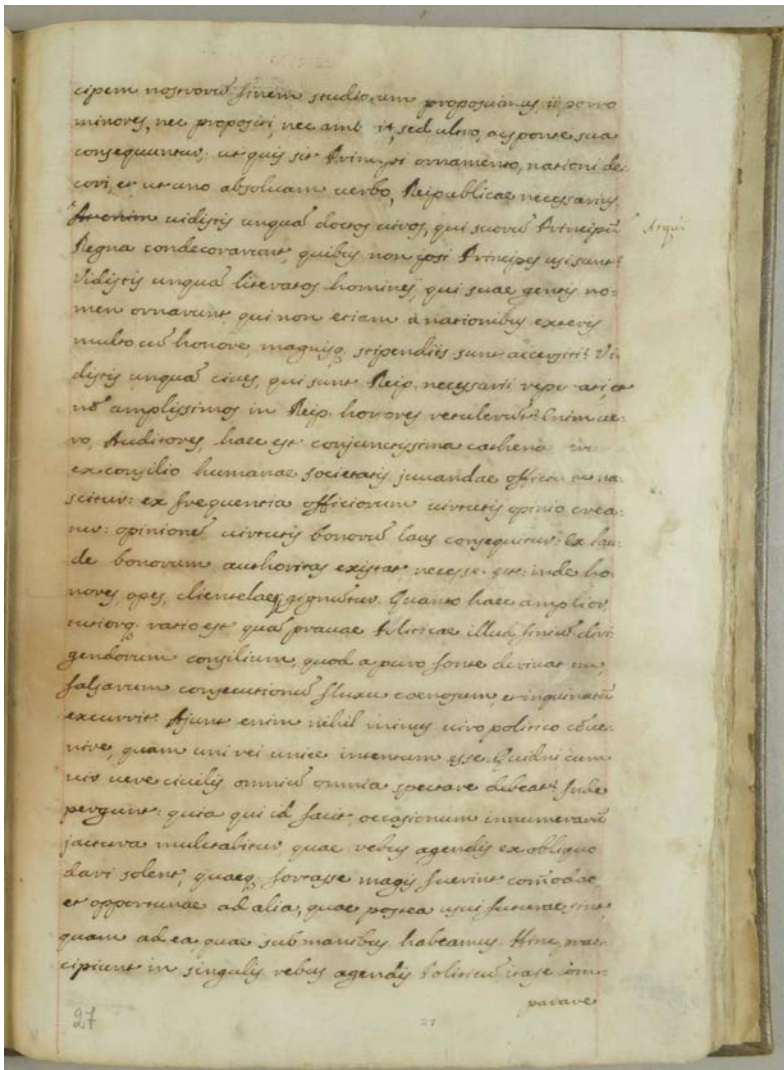 cipem nostrorũ finem studiorum proposuimus, ii porro
minores, nec propositi, nec sed ultro, ac sponte sua
consequuntur; ut quis sit Principi ornamento, nationi de:
cori, et ut uno absolvam verbo, Reipublicae necessarius.
enim vidistis unquã doctos viros, qui suorũ Principũ
Atqui
Regna condecorarunt, quibus non ipsi Principes usi sunt?
Vidistis unquã literatos homines, qui suae gentis no:
men ornarunt, qui non etiam à nationibus exteris
multo cũ honore, magnisq. stipendiis sunt accersiti? Vi:
distis unquã cives, qui sunt Reip. necessarii reputati, et
nõ amplissimos in Reip. honores retulerũt? Enim ve:
ro, Auditores, haec est conjunctissima cathena
ex consilio humanae societatis juvandae na:
scitur: ex frequentia officiorum virtutis opinio crea:
tur: opinionẽ virtutis bonorũ laus consequitur: Ex lau:
de bonorum authoritas existat, necesse est: inde ho:
nores, opes, clientelaeq. gignũtur. Quanto haec amplior,
tutiorq. ratio est, quã pravae Politicae illud finiũ diri:
gendorum consilium, quod a puro fonte derivatum,
falsarum consecutionũ fluxu coenosum, et inquinatũ
excurrit. Ajunt enim nihil minus viro politico cõve:
nire, quam uni rei unice intentum esse. Quidni cum
vir vere civilis omniũ omnia spectare debeat? Inde
pergunt: quia qui id facit, occasionum innumerarũ
jactura mulctabitur quae rebus agendis ex obliquo
dari solent, quaeq. fortasse magis fuerint comõdae
et opportunae ad alia, quae postea usui futurae sint,
quam ad ea, quae sub manibus habeamus. Hinc prae:
cipiunt in singulis rebus agendis Politicũ ita se com:
parare
27